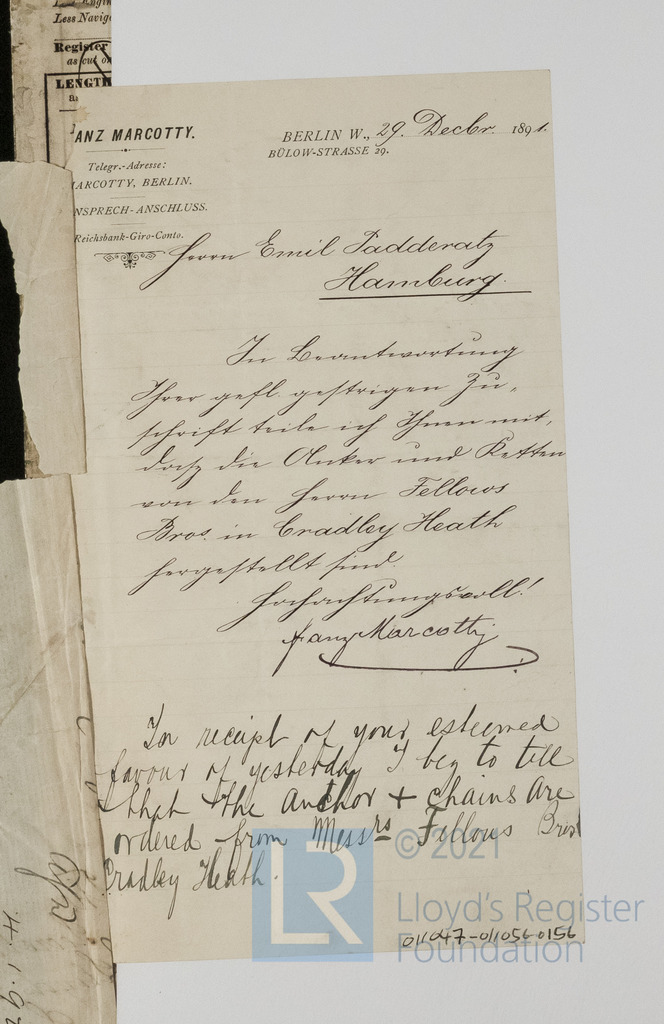 Less Navig
Register
as cut on
LENGTH
ANZ MARCOTTY.
Telegr.-Adresse:
MARCOTTY, BERLIN.
NSPRECH-ANSCHLUSS.
Reichsbank-Giro-Conto.
BERLIN W., 29. Decbr. 1891.
BÜLOW-STRASSE 29.
Herrn Emil Padderatz
Hamburg.
In Beantwortung
Ihrer gefl. gestrigen Zu-
schrift teile ich Ihnen mit,
dass die Anker und Ketten
von den Herrn Fellows
Bros. in Cradley Heath
hergestellt sind.
Hochachtungsvoll!
Franz Marcotty
In receipt of your esteemed
favour of yesterday I beg to tell
that the anchor + chains are
ordered from Messrs Fellows Bros
Cradley Heath.
LR © 2021
Lloyd's Register
Foundation
011047-011056-0156